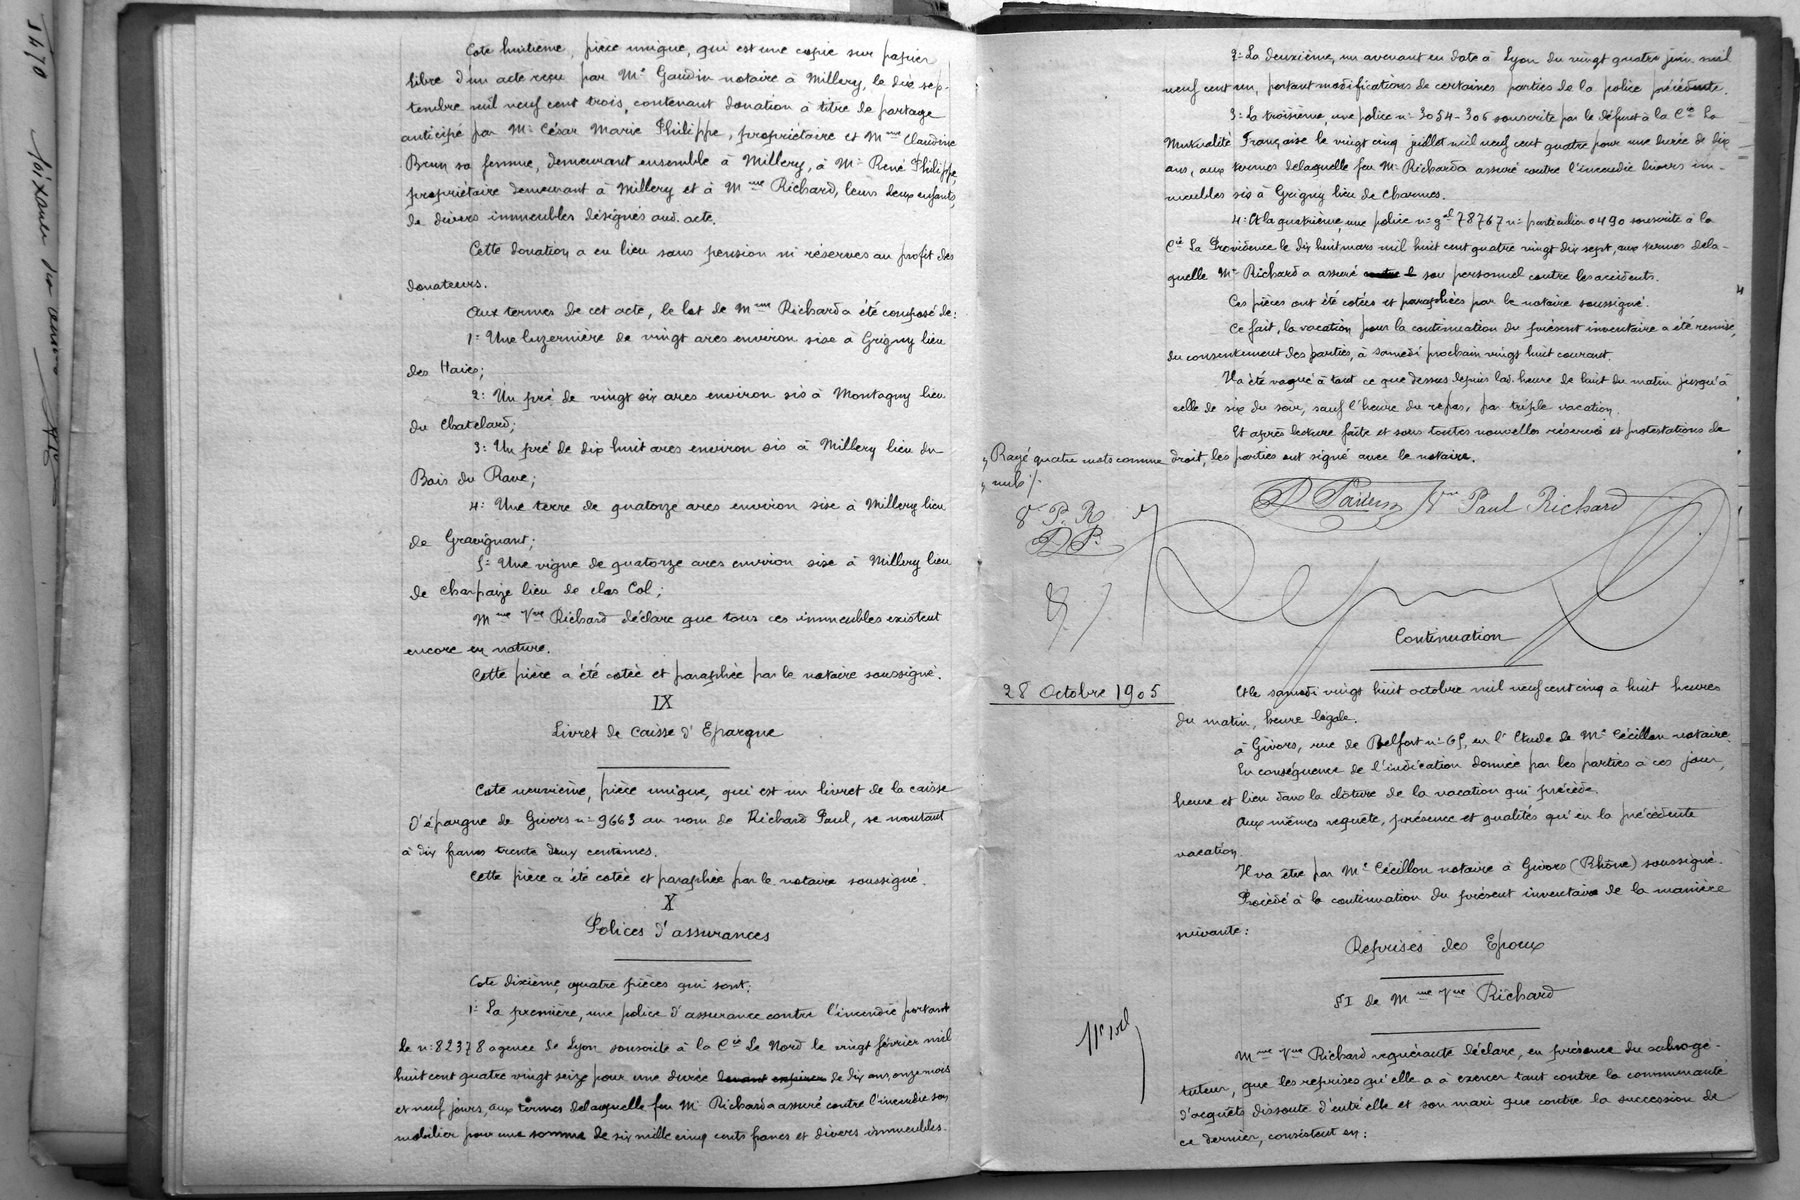 Cote huitième, pièce unique, qui est une copie sur papier
libre d'un acte reçu par Me Gaudin notaire à Millery, le dix sep-
tembre mil neuf cent trois, contenant donation à titre de partage
anticipé par Mr César Marie Philippe, propriétaire et Mme Claudine
Brun sa femme, demeurant ensemble à Millery, à Mr René Philippe,
propriétaire demeurant à Millery et à Mme Richard, leurs deux enfants,
de divers immeubles désignés aud. acte.
Cette donation a eu lieu sans pension ni réserves au profit des
donateurs.
Aux termes de cet acte, le lot de Mme Richard a été composé de:
1: Une luzernière de vingt ares environ sise à Grigny lieu
des Haies;
2: Un pré de vingt six ares environ sis à Montagny lieu
du Chatelard;
3: Un pré de dix huit ares environ sis à Millery lieu du
Bois du Rave;
4: Une terre de quatorze ares environ sise à Millery lieu
de Gravignant;
5: Une vigne de quatorze ares environ sise à Millery lieu
de Charpaize lieu de clos Col;
Mme Vve Richard déclare que tous ces immeubles existent
encore en nature.
Cette pièce a été cotée et paraphée par le notaire soussigné.
IX
Livret de Caisse d'Epargne
Cote neuvième, pièce unique, qui est un livret de la caisse
d'épargne de Givors n: 9663 au nom de Richard Paul, se montant
à dix francs trente deux centimes.
Cette pièce a été cotée et paraphée par le notaire soussigné.
X
Polices d'assurances
Cote dixième, quatre pièces qui sont:
1: La première, une police d'assurance contre l'incendie portant
le n: 82378 agence de Lyon souscrite à la Cie Le Nord le vingt février mil
huit cent quatre vingt seize pour une durée devant expirer de dix ans onze mois
et neuf jours, aux termes de laquelle feu Mr Richard a assuré contre l'incendie son
mobilier pour une somme de six mille cinq cents francs et divers immeubles.
2: La deuxième, un avenant en date à Lyon du vingt quatre juin mil
neuf cent un, portant modifications de certaines parties de la police précédente.
3: La troisième, une police n: 3054-306 souscrite par le défunt à la Cie La
Mutualité Française le vingt cinq juillet mil neuf cent quatre pour une durée de dix
ans, aux termes de laquelle feu Mr Richard a assuré contre l'incendie divers im-
meubles sis à Grigny lieu de Charmes.
4: Et la quatrième, une police n: gal 78767 n: particulier 0490 souscrite à la
Cie La Providence le dix huit mars mil huit cent quatre vingt dix sept, aux termes de la-
quelle Mr Richard a assuré contre l son personnel contre les accidents.
Ces pièces ont été cotées et paraphées par le notaire soussigné.
Ce fait, la vacation pour la continuation du présent inventaire a été remise,
du consentement des parties, à samedi prochain vingt huit courant.
Il a été vaqué à tout ce que dessus depuis lad. heure de huit du matin jusqu'à
celle de six du soir, sauf l'heure du repas, par triple vacation.
Et après lecture faite et sous toutes nouvelles réserves et protestations de
droit, les parties ont signé avec le notaire.
Rayé quatre mots comme
nuls
Vve P. R
D P.
Vve Paul Richard
Continuation
28 Octobre 1905
Et le samedi vingt huit octobre mil neuf cent cinq à huit heures
du matin, heure légale.
à Givors, rue de Belfort n: 65, en l'Etude de Me Cécillon notaire.
En conséquence de l'indication donnée par les parties à ces jour,
heure et lieu dans la clôture de la vacation qui précède.
Aux mêmes requête, présence et qualités qu'en la précédente
vacation.
Il va être par Me Cécillon notaire à Givors (Rhône) soussigné.
Procédé à la continuation du présent inventaire de la manière
suivante:
Reprises des Epoux
§I de Mme Vve Richard
Mme Vve Richard requérante déclare, en présence du subrogé-
tuteur, que les reprises qu'elle a à exercer tant contre la communauté
d'acquêts dissoute d'entr'elle et son mari que contre la succession de
ce dernier, consistent en: